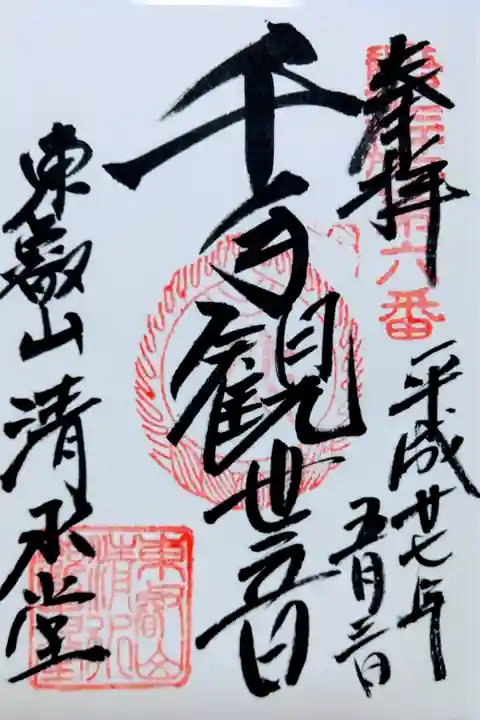 奉拝
六番
平成廿七年
五月三日
千手観世音
東叡山清水堂
東叡山
清水